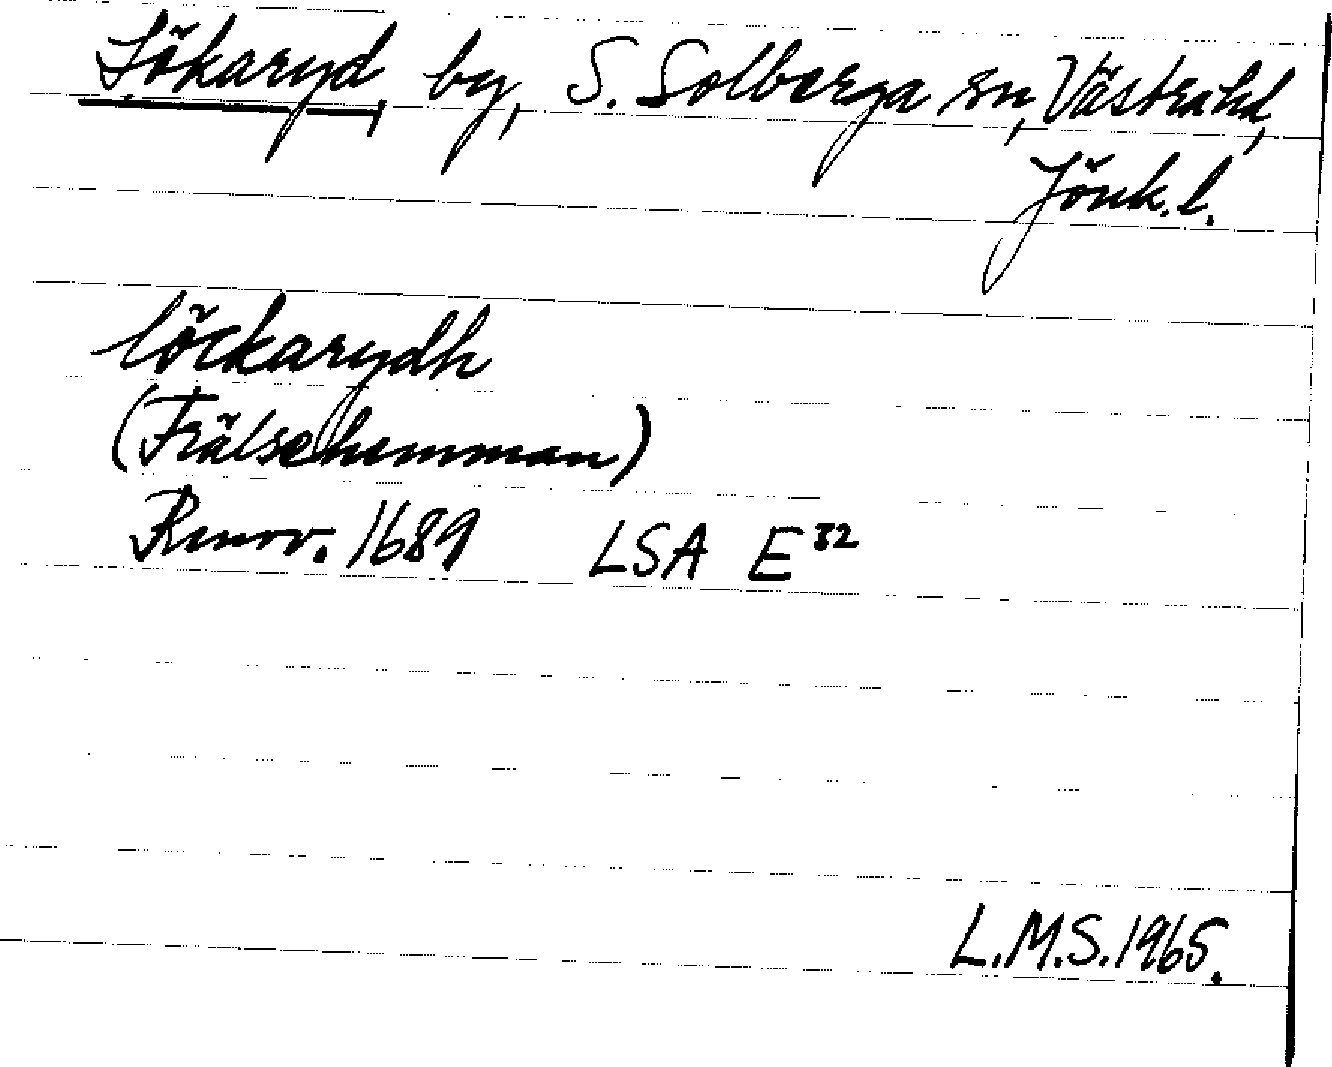 Lökaryd, by, S. Solberga sn, Västra hd,
Jönk. l.
löckarydh
(Frälsehemman)
Renov. 1689 LSA E³²
L.M.S. 1965.